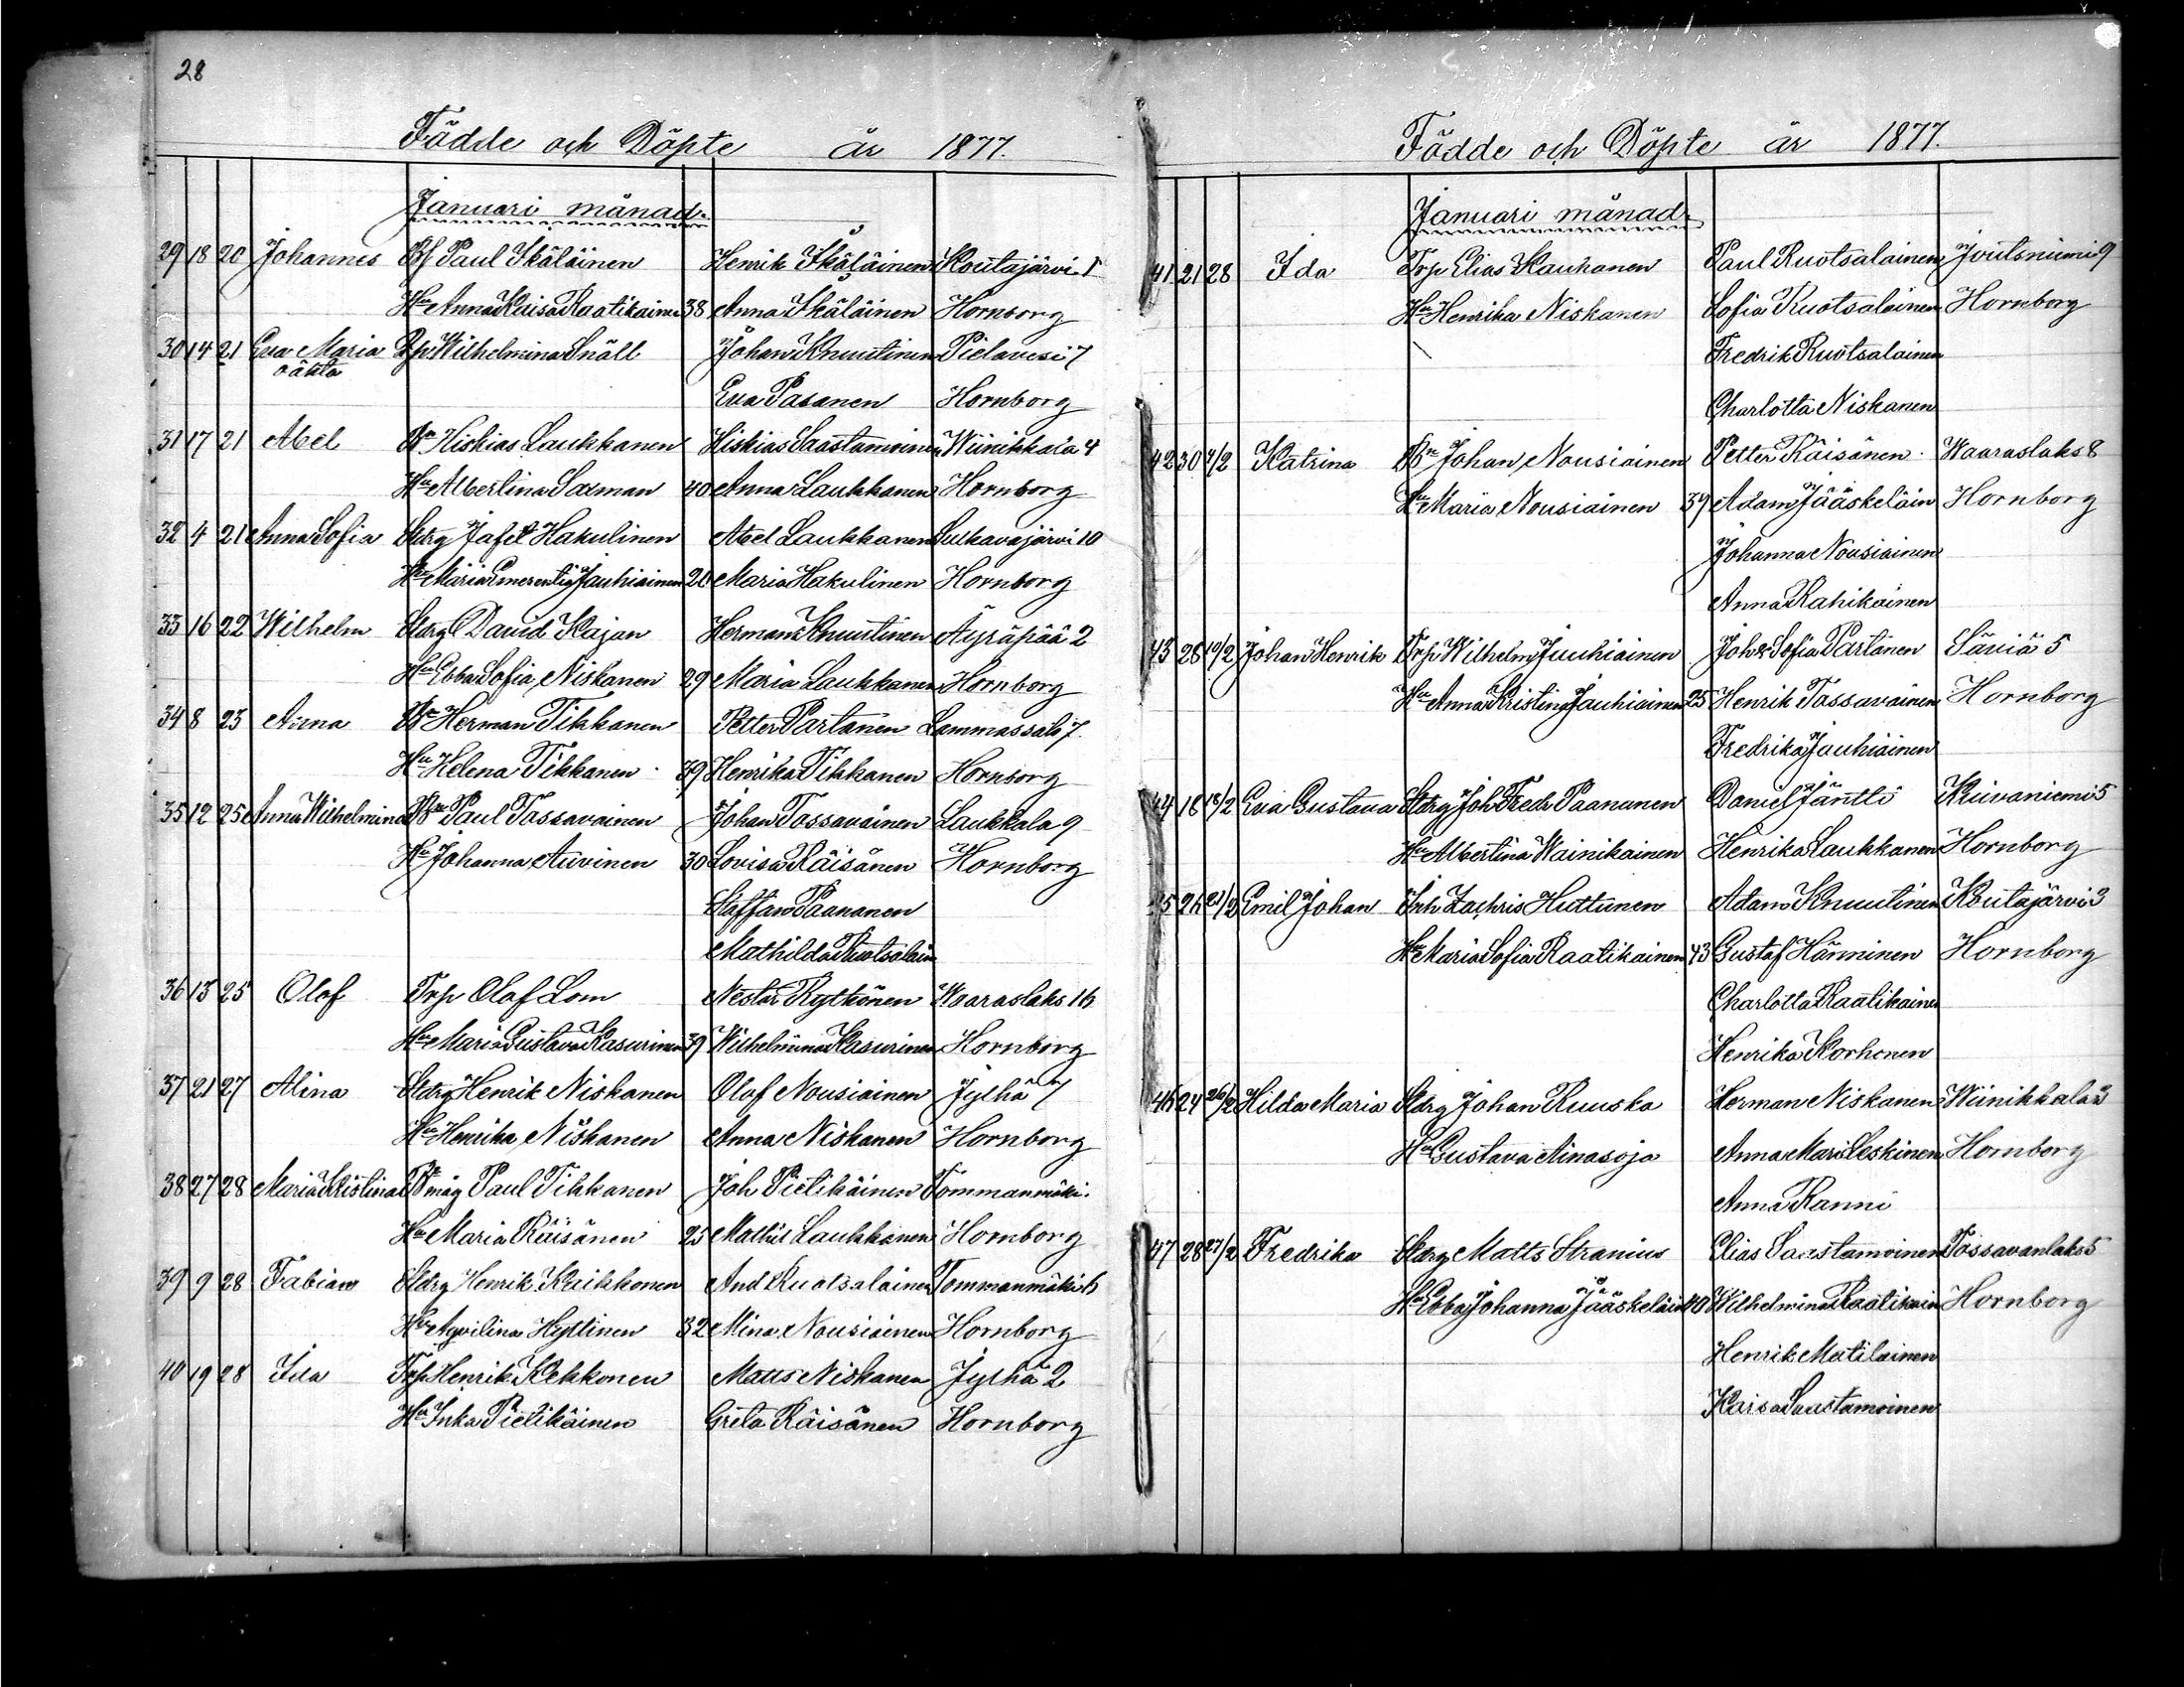 28
Födde och Döpte år 1877.
Januari månad.
29 18 20 Johannes Bf Paul Ikäläinen Henrik Ikäläinen Koutajärvi 1
Hu Anna Kaisa Raatikainen 38 Anna Ikäläinen Hornborg
30 14 21 Eva Maria Wilhelmina Snäll Johan Knuutinen Pielavesi 7
oäkta Eva Pasanen Hornborg
31 17 21 Abel Bn Hiskias Laukkanen Hiskias Saastamoinen Wiinikkala 4
Hu Albertina Saxman 40 Anna Laukkanen Hornborg
32 4 21 Anna Sofia Stdrg Jafet Hakulinen Abel Laukkanen Sulkavajärvi 10
Hu Maria Emerentia Jauhiainen 20 Maria Hakulinen Hornborg
33 16 22 Wilhelm Stdrg David Kajan Herman Knuutinen Äyräpää 2
Hu Ebba Sofia Niskanen 29 Maria Laukkanen Hornborg
34 8 23 Anna Bn Herman Tikkanen Petter Partanen Lammassalo 7.
Hu Helena Tikkanen 39 Henrika Tikkanen Hornborg
35 12 25 Anna Wilhelmina Bn Paul Tossavainen Johan Tossavainen Laukkala 9
Hu Johanna Auvinen 30 Lovisa Räisänen Hornborg
Staffan Paananen
Mathilda Ruotsalain
36 13 25 Olof Trp Olof Lom Nestor Rytkönen Waaraslaks 16
Hu Maria Gustava Kasurinen 39 Wilhelmina Kasurinen Hornborg
37 21 27 Alina Stdrg Henrik Niskanen Olof Nousiainen Jylhä 7
Hu Henrika Niskanen Anna Niskanen Hornborg
38 27 28 Maria Kristina Bn måg Paul Tikkanen Joh Pietikäinen Tommanmäki
Hu Maria Räisänen 25 Mathil Laukkanen Hornborg
39 9 28 Fabian Stdrg Henrik Kaikkonen And Ruotsalainen Tommanmäki 6
Hu Agvilina Hyttinen 32 Mina Nousiainen Hornborg
40 19 28 Ida Trp Henrik Kekkonen Matts Niskanen Jylhä 2
Hu Inka Pietikäinen Greta Räisänen Hornborg
Födde och Döpte år 1877.
Januari månad.
41 21 28 Ida Trp Elias Kauhanen Paul Ruotsalainen Joutsniemi 9
Hu Henrika Niskanen Sofia Ruotsalainen Hornborg
Fredrik Ruotsalainen
Charlotta Niskanen
42 30 4/2 Katrina Bn Johan Nousiainen Petter Räisänen Waaraslaks 8
Hu Maria Nousiainen 39 Adam Jääskeläin Hornborg
Johanna Nousiainen
Anna Rahikainen
43 28 10/2 Johan Henrik Trp Wilhelm Jauhiainen Joh & Sofia Partanen Säviä 5
Hu Anna Kristina Jauhiainen 25 Henrik Tossavainen Hornborg
Fredrika Jauhiainen
44 18 18/2 Eva Gustava Stdrg Joh Fredr Paananen Daniel Jäntti Kiivaniemi 5
Hu Albertina Wainikainen Henrika Laukkanen Hornborg
45 26 21/2 Emil Johan Inh Zachris Huttunen Adam Knuutinen Koutajärvi 3
Hu Maria Sofia Raatikainen 43 Gustaf Hänninen Hornborg
Charlotta Raatikaine
Henrika Korhonen
46 24 26/2 Hilda Maria Stdrg Johan Ruuska Herman Niskanen Wiinikkala 3
Hu Gustava Ainasoja Anna Mari Leskinen Hornborg
Anna Ranni
47 28 27/2 Fredrika Stdrg Matts Stranius Elias Saastamoinen Tossavanlaks 5
Hu Ebba Johanna Jääskeläin 40 Wilhelmina Raatikain Hornborg
Henrik Matilainen
Kaisa Saastamoinen